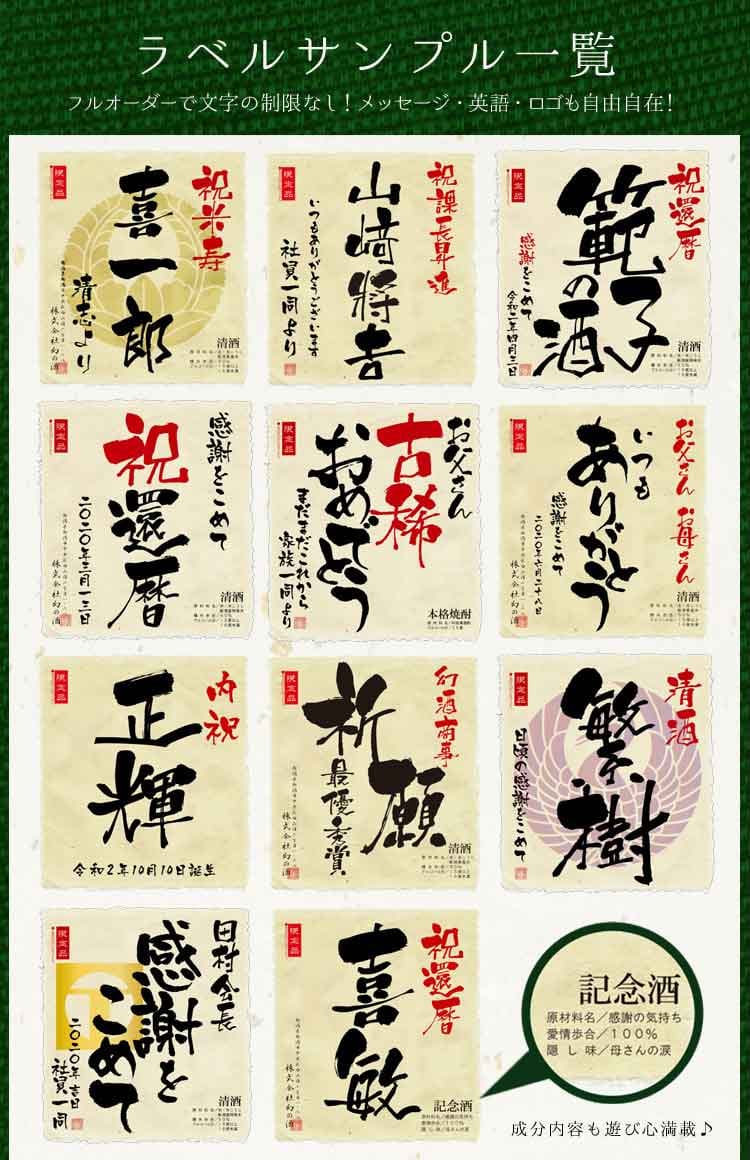 ラベルサンプル一覧
フルオーダーで文字の制限なし!メッセージ・英語・ロゴも自由自在!
限定品
祝米寿
喜一郎
清志より
株式会社幻の酒
清酒
限定品
祝課長昇進
山﨑將吉
いつもありがとうございます
社員一同より
限定品
祝還暦
範子
の酒
感謝をこめて
令和二年四月三日
清酒
限定品
感謝をこめて
祝
還暦
二〇二〇年三月一三日
株式会社幻の酒
清酒
限定品
お父さん
古稀
おめでとう
まだまだこれから
家族一同より
本格焼酎
限定品
お父さん お母さん
いつも
ありがとう
感謝をこめて
二〇二〇年六月二十八日
株式会社幻の酒
清酒
限定品
内祝
正輝
令和2年10月10日誕生
限定品
幻酒商事
祈願
最優秀賞
株式会社幻の酒
清酒
限定品
清酒
繁樹
日頃の感謝をこめて
限定品
田村会長
感謝を
こめて
二〇二〇年吉日
社員一同
清酒
限定品
祝還暦
喜敏
株式会社幻の酒
記念酒
原材料名/感謝の気持ち
愛情歩合/100%
隠し味/母さんの涙
記念酒
原材料名/感謝の気持ち
愛情歩合/100%
隠し味/母さんの涙
成分内容も遊び心満載♪